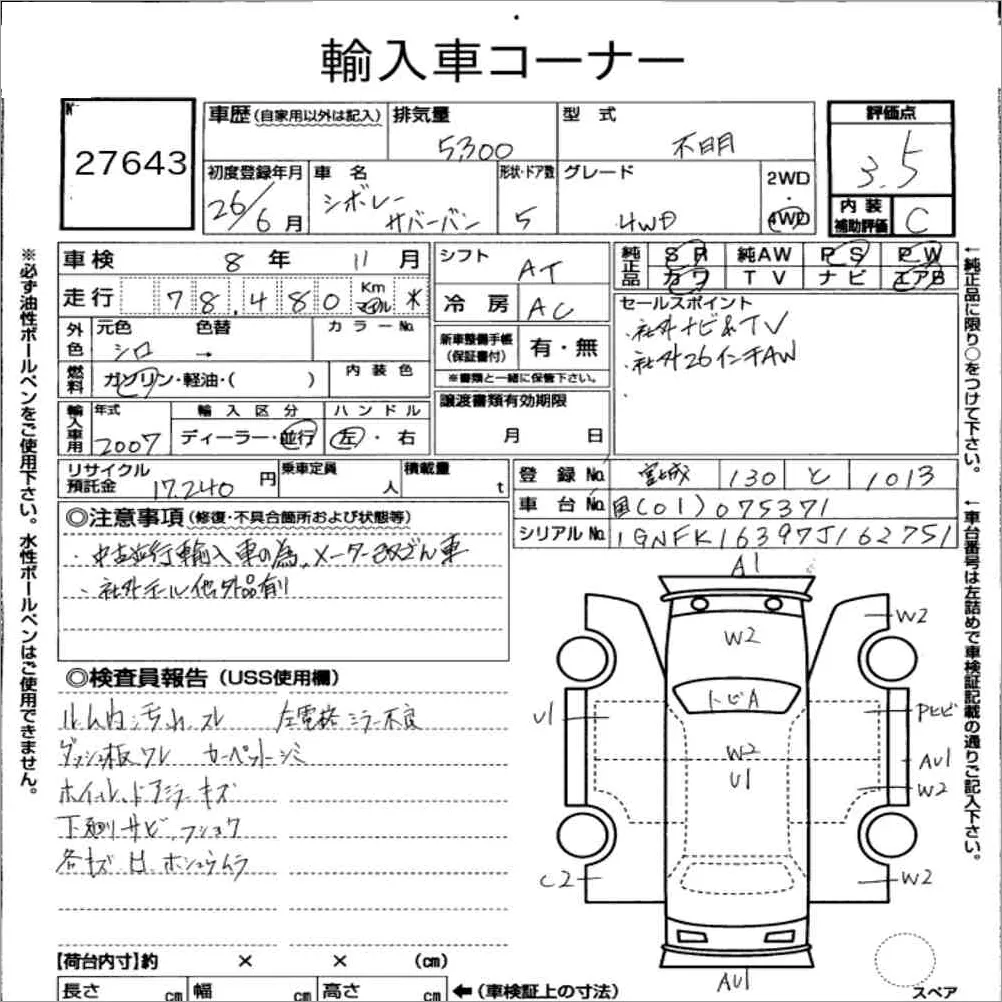 輸入車コーナー
27643
車歴(自家用以外は記入)
排気量
5,300
型式
不明
評価点
3.5
初度登録年月
26/6月
車名
シボレー
サバーバン
形状・ドア数
5
グレード
4WD
2WD
・
4WD
内装
補助評価
C
車検 8年 11月
走行 78,480 Km マイル *
シフト
AT
冷房
AC
純正品
SR 純AW PS PW
カワ TV ナビ エアB
セールスポイント
・社外ナビ&TV
・社外26インチAW
・
外色
元色 シロ
色替 →
カラーNo.
燃料
ガソリン・軽油・( )
内装色
新車整備手帳
(保証書付)
有・無
※書類と一緒に保管下さい。
輸入車用
年式
2007
輸入区分
ディーラー・並行
ハンドル
左・右
譲渡書類有効期限
月 日
リサイクル
預託金 17,240円
乗車定員 人
積載量 t
登録No. 宮城 130 と 1013
車台No. 国(01)075371
シリアルNo. 1GNFK16397J162751
◎注意事項(修復・不具合箇所および状態等)
・中古並行輸入車の為、メーター改ざん車
・社外ホイール他外品有り
◎検査員報告(USS使用欄)
ルーム内汚れ、スレ 左電格ミラー不良
ダッシュ板ワレ カーペットシミ
ホイール、ドアミラーキズ
下廻りサビ、フショク
各キズ、凹、ホシュウムラ
A1
W2
W2
トビA
U1
Pヒビ
W2
U1
AU1
W2
C2
W2
AU1
スペア
【荷台内寸】約 × × (cm)
長さ cm 幅 cm 高さ cm ←(車検証上の寸法)
※必ず油性ボールペンをご使用下さい。水性ボールペンはご使用できません。
←純正品に限り○をつけて下さい。
←車台番号は左詰めで車検証記載の通りご記入下さい。